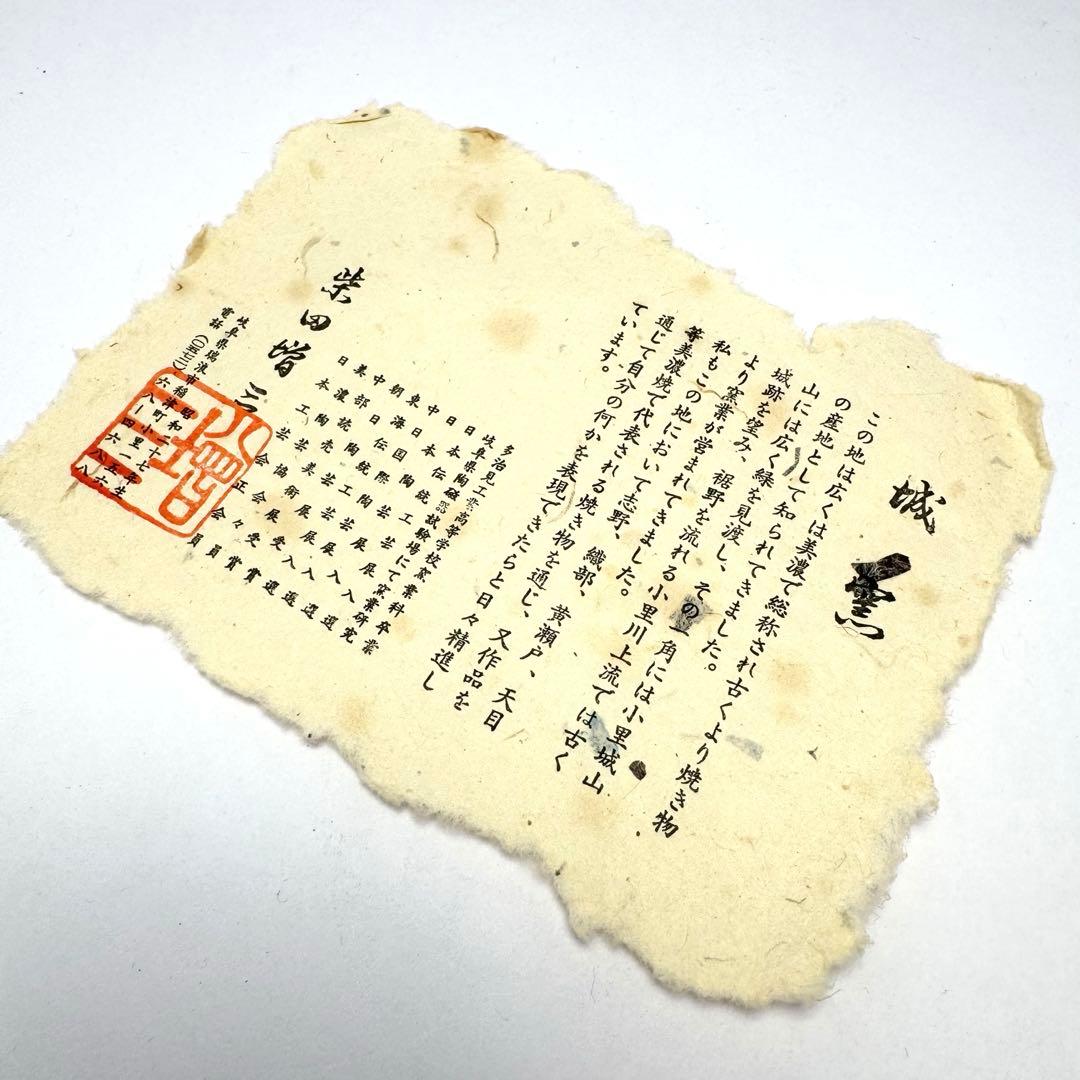 城窯
この地は広くは美濃で総称され古くより焼き物
の産地として知られてきました。
山には広く緑を見渡し、その一角には小里城山
城跡を望み、裾野を流れる小里川上流では古く
より窯業が営まれてきました。
私もこの地において志野、織部、黄瀬戸、天目
等美濃焼で代表される焼き物を通し、又作品を
通じて自分の何かを表現できたらと日々精進し
ています。
多治見工業高等学校窯業科卒業
岐阜県陶磁器試験場にて窯業研究
日本伝統工芸展入選
中日国際陶芸展入選
東海伝統工芸展入選
朝日陶芸展入選
中部
美濃
日本工芸会正会員
柴田増三
昭和二十七年生
岐阜県瑞浪市稲津町小里
電話(〇五七二)六八-四六八六